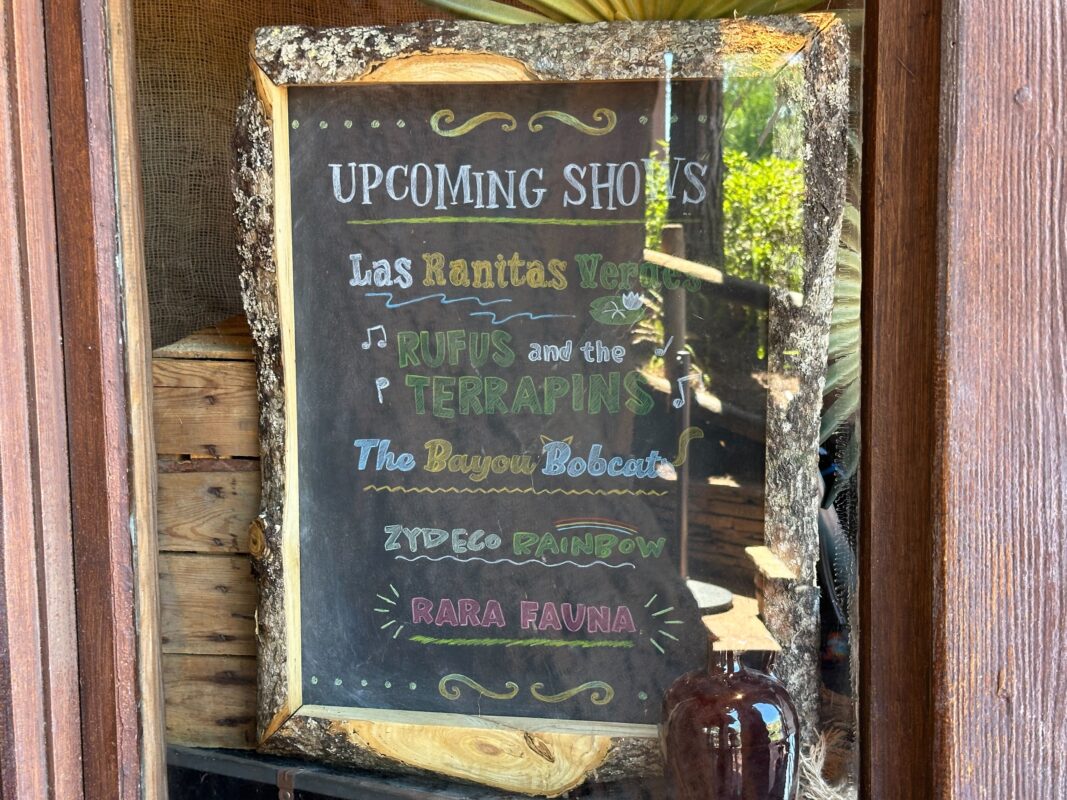 UPCOMING SHOWS
Las Ranitas Verdes
RUFUS and the
TERRAPINS
The Bayou Bobcats
ZYDECO RAINBOW
RARA FAUNA